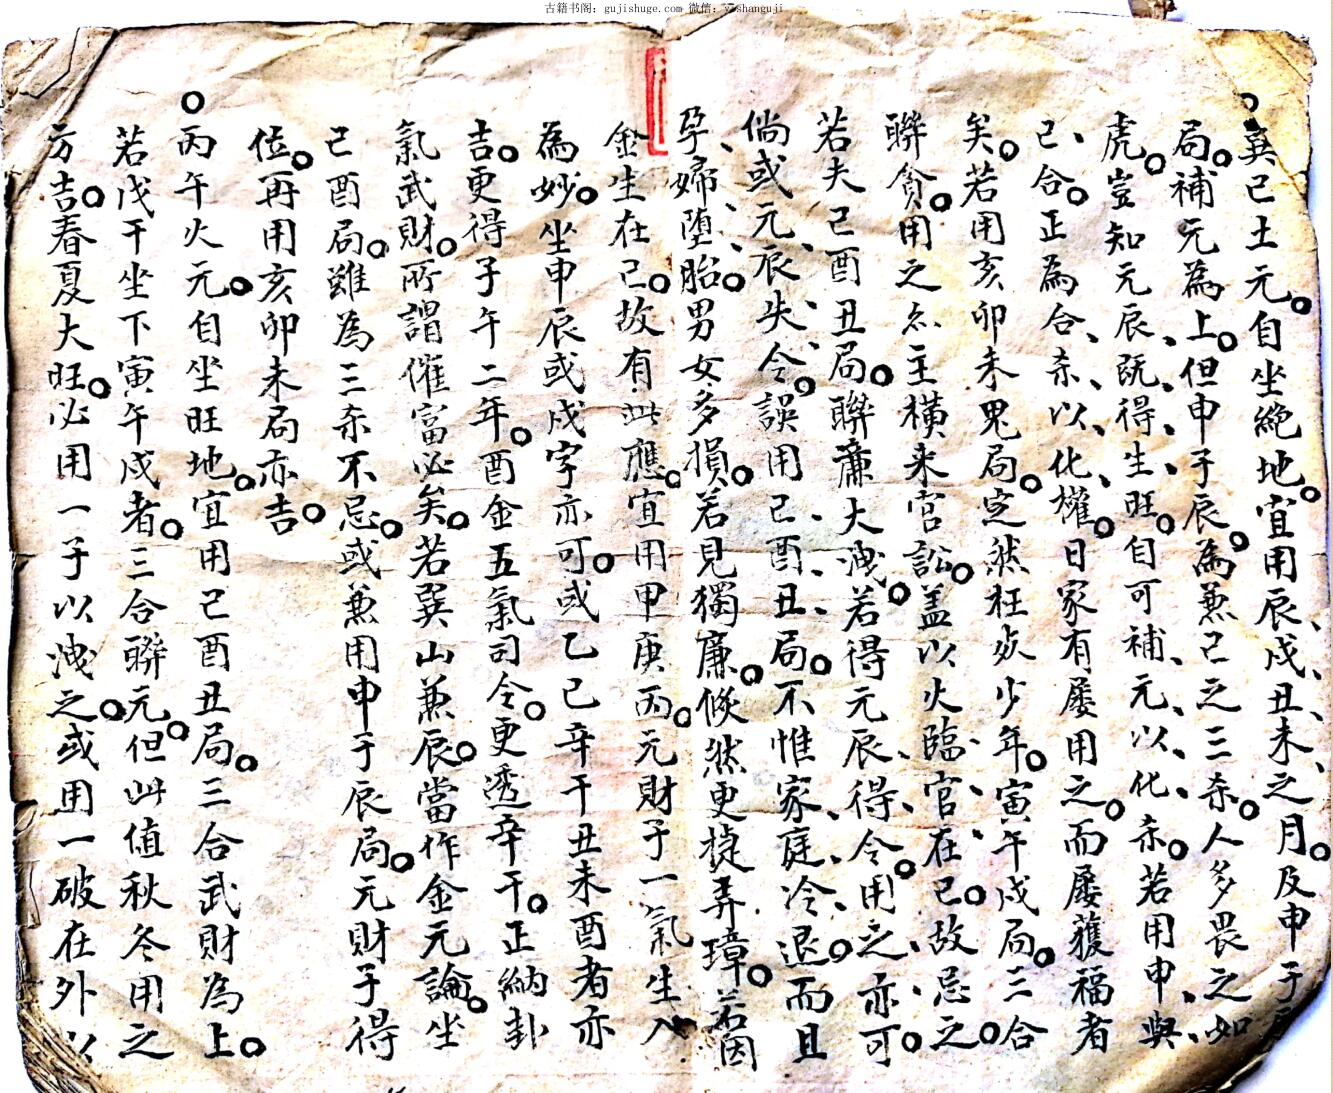 古籍书阁：gujishuge.com 微信：yishanguji
巽巳土元。自坐絶地。宜用辰、戌、丑、未之月。及申子
局。補元為上。但申子辰。為兼巳之三杀。人多畏之如
虎。豈知元辰既得生旺。自可補元以化杀。若用申與
巳合。正為合杀以化權。日家有屡用之。而屡獲福者
矣。若用亥卯未鬼局。定然枉死少年。寅午戌局。三合
聯貪。用之亦主橫来官訟。盖以火臨官在巳。故忌之。
若夫巳酉丑局。聯亷大洩。若得元辰得令。用之亦可。
倘或元辰失令。誤用巳酉丑局。不惟家庭冷退。而且
孕婦墮胎。男女多損。若見獨廉。倐然更㨗弄璋。若因
金生在巳。故有此應。宜用甲庚丙。元財于一氣生入
為妙。坐申辰或戌字亦可。或乙巳辛干丑未酉者亦
吉。更得子午二年。酉金五氣司令。更透辛干。正納卦
氣武財。所謂催富必矣。若巽山兼辰。當作金元論。坐
巳酉局。雖為三杀不忌。或兼用申子辰局。元財子得
位。再用亥卯未局亦吉。
丙午火元。自坐旺地。宜用巳酉丑局。三合武財為上。
若戊干坐下寅午戌者。三合聯元。但此值秋冬用之
方吉。春夏大旺。必用一子以洩之。或用一破在外以